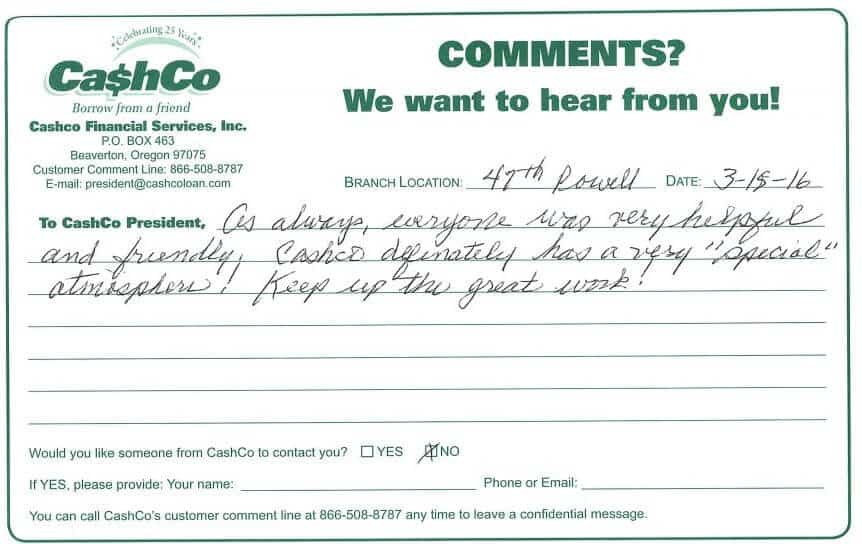 Celebrating 25 Years
Ca$hCo
Borrow from a friend
Cashco Financial Services, Inc.
P.O. BOX 463
Beaverton, Oregon 97075
Customer Comment Line: 866-508-8787
E-mail: president@cashcoloan.com
COMMENTS?
We want to hear from you!
BRANCH LOCATION: 47th Powell DATE: 3-15-16
To CashCo President, As always, everyone was very helpful
and friendly, Cashco definately has a very "special"
atmosphere! Keep up the great work!
Would you like someone from CashCo to contact you? YES NO
If YES, please provide: Your name: Phone or Email:
You can call CashCo's customer comment line at 866-508-8787 any time to leave a confidential message.